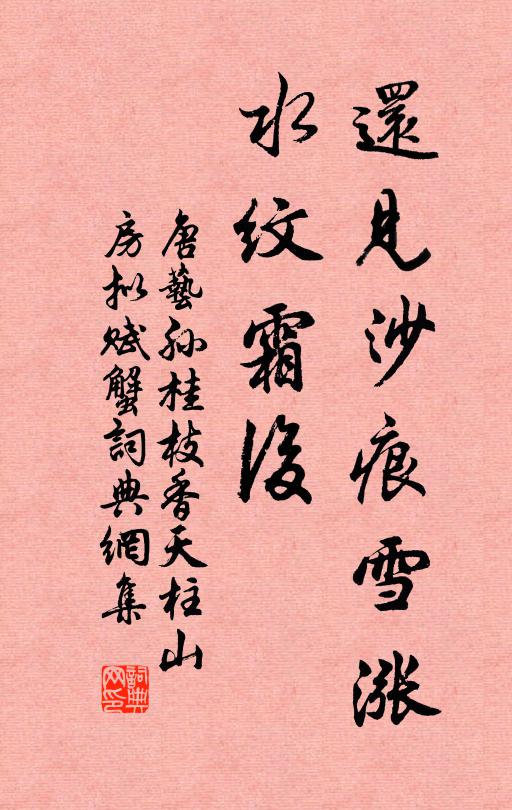 還見沙痕雪漲
水紋霜後
唐藝孙桂枝香天柱山
房拟赋蟹詞典網集
詞典
网印